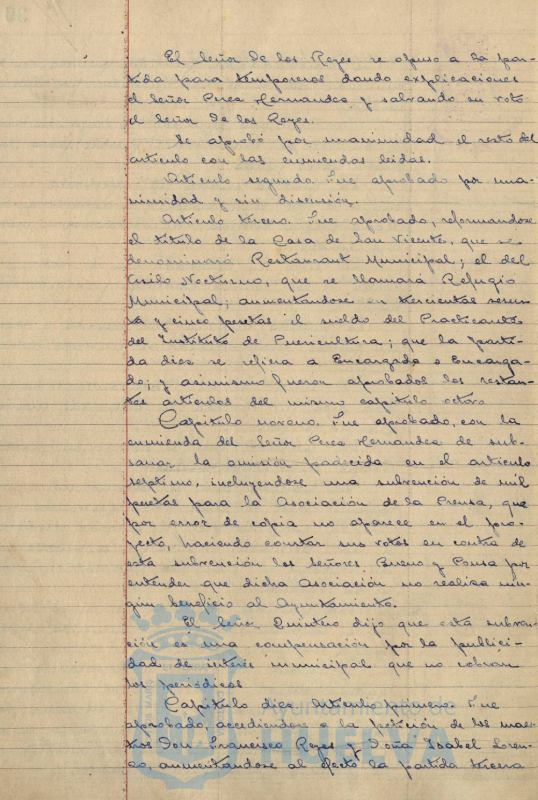 El Señor de los Reyes se opuso a la par-
tida para temporeros dando explicaciones
el Señor Cerca Hernandez y salvando su voto
el Señor de los Reyes.
Se aprobó por unanimidad el resto del
artículo con las enmiendas leidas.
Artículo segundo. Fue aprobado por una-
nimidad y sin discusión.
Artículo tercero. Fue aprobado, reformandose
el título de la Casa de San Vicente, que se
denominará Restaurant Municipal; el del
Asilo Nocturno, que se llamará Refugio
Municipal; aumentandose en trescientas sesen-
ta y cinco pesetas el sueldo del Practicante
del Instituto de Puericultura; que la parti-
da diez se refiera a Encargado o Encarga-
do; y asimismo fueron aprobados los restan-
tes artículos del mismo capítulo octavo
Capítulo noveno. Fue aprobado, con la
enmienda del Señor Cerca Hernandez de sub-
sanar la omisión padecida en el artículo
septimo, incluyendose una subvención de mil
pesetas para la Asociación de la Prensa, que
por error de copia no aparece en el pro-
yecto, haciendo constar sus votos en contra de
esta subvención los Señores Bueno y Ponsa por
entender que dicha Asociación no realiza nin-
gun beneficio al Ayuntamiento.
El Señor Quintero dijo que esta subven-
ción es una compensación por la publici-
dad de interés municipal que no cobran
los periódicos
Capítulo diez. Artículo primero. Fue
aprobado, accediendose a la petición de los maes-
tros Don Francisco Reyes y Doña Isabel Loren-
zo, aumentandose al efecto la partida tercera
Ayuntamiento de
HUELVA